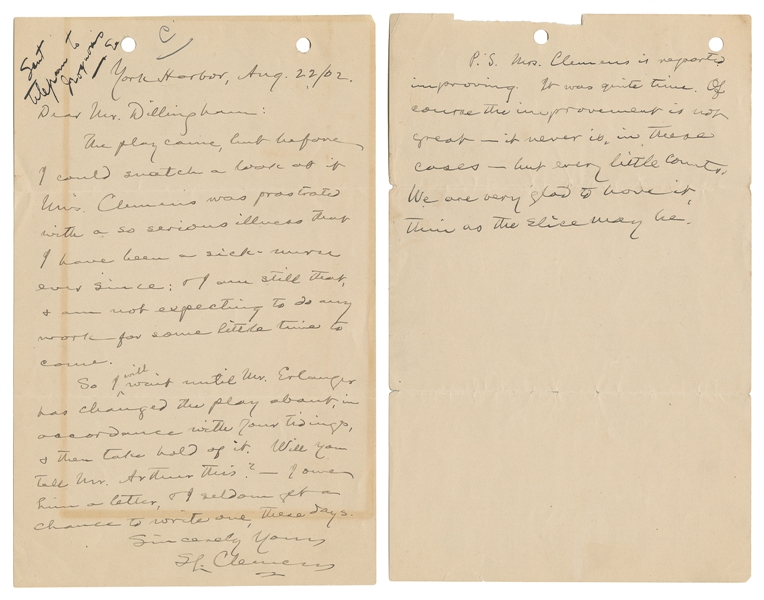 Sent
telegram to
C
York Harbor, Aug. 22/02.
Dear Mr. Dillingham:
The play came, but before
I could snatch a look at it
Mrs. Clemens was prostrated
with a so serious illness that
I have been a sick-nurse
ever since; & I am still that,
& am not expecting to do any
work for some little time to
come.
So I will wait until Mr. Erlanger
has changed the play about, in
accordance with your tidings,
& then take hold of it. Will you
tell Mr. Arthur this? — I owe
him a letter, & I seldom get a
chance to write one, these days.
Sincerely Yours
SL. Clemens
P.S. Mrs. Clemens is reported
improving. It was quite time. Of
course the improvement is not
great — it never is, in these
cases — but every little counts.
We are very glad to have it,
thin as the slice may be.